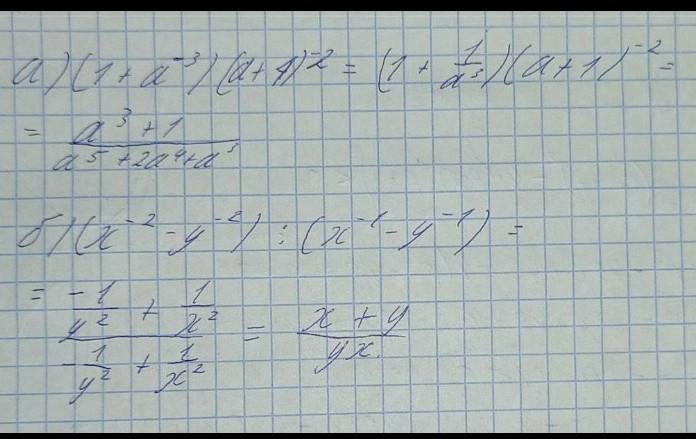 а) (1 + a⁻³) (a + 1)⁻² = (1 + 1/a³) (a + 1)⁻² =
= (a³ + 1)/(a⁵ + 2a⁴ + a³)
б) (x⁻² - y⁻²) : (x⁻¹ - y⁻¹) =
= (-1/y² + 1/x²)/(-1/y² + 1/x²) = (x + y)/(yx)